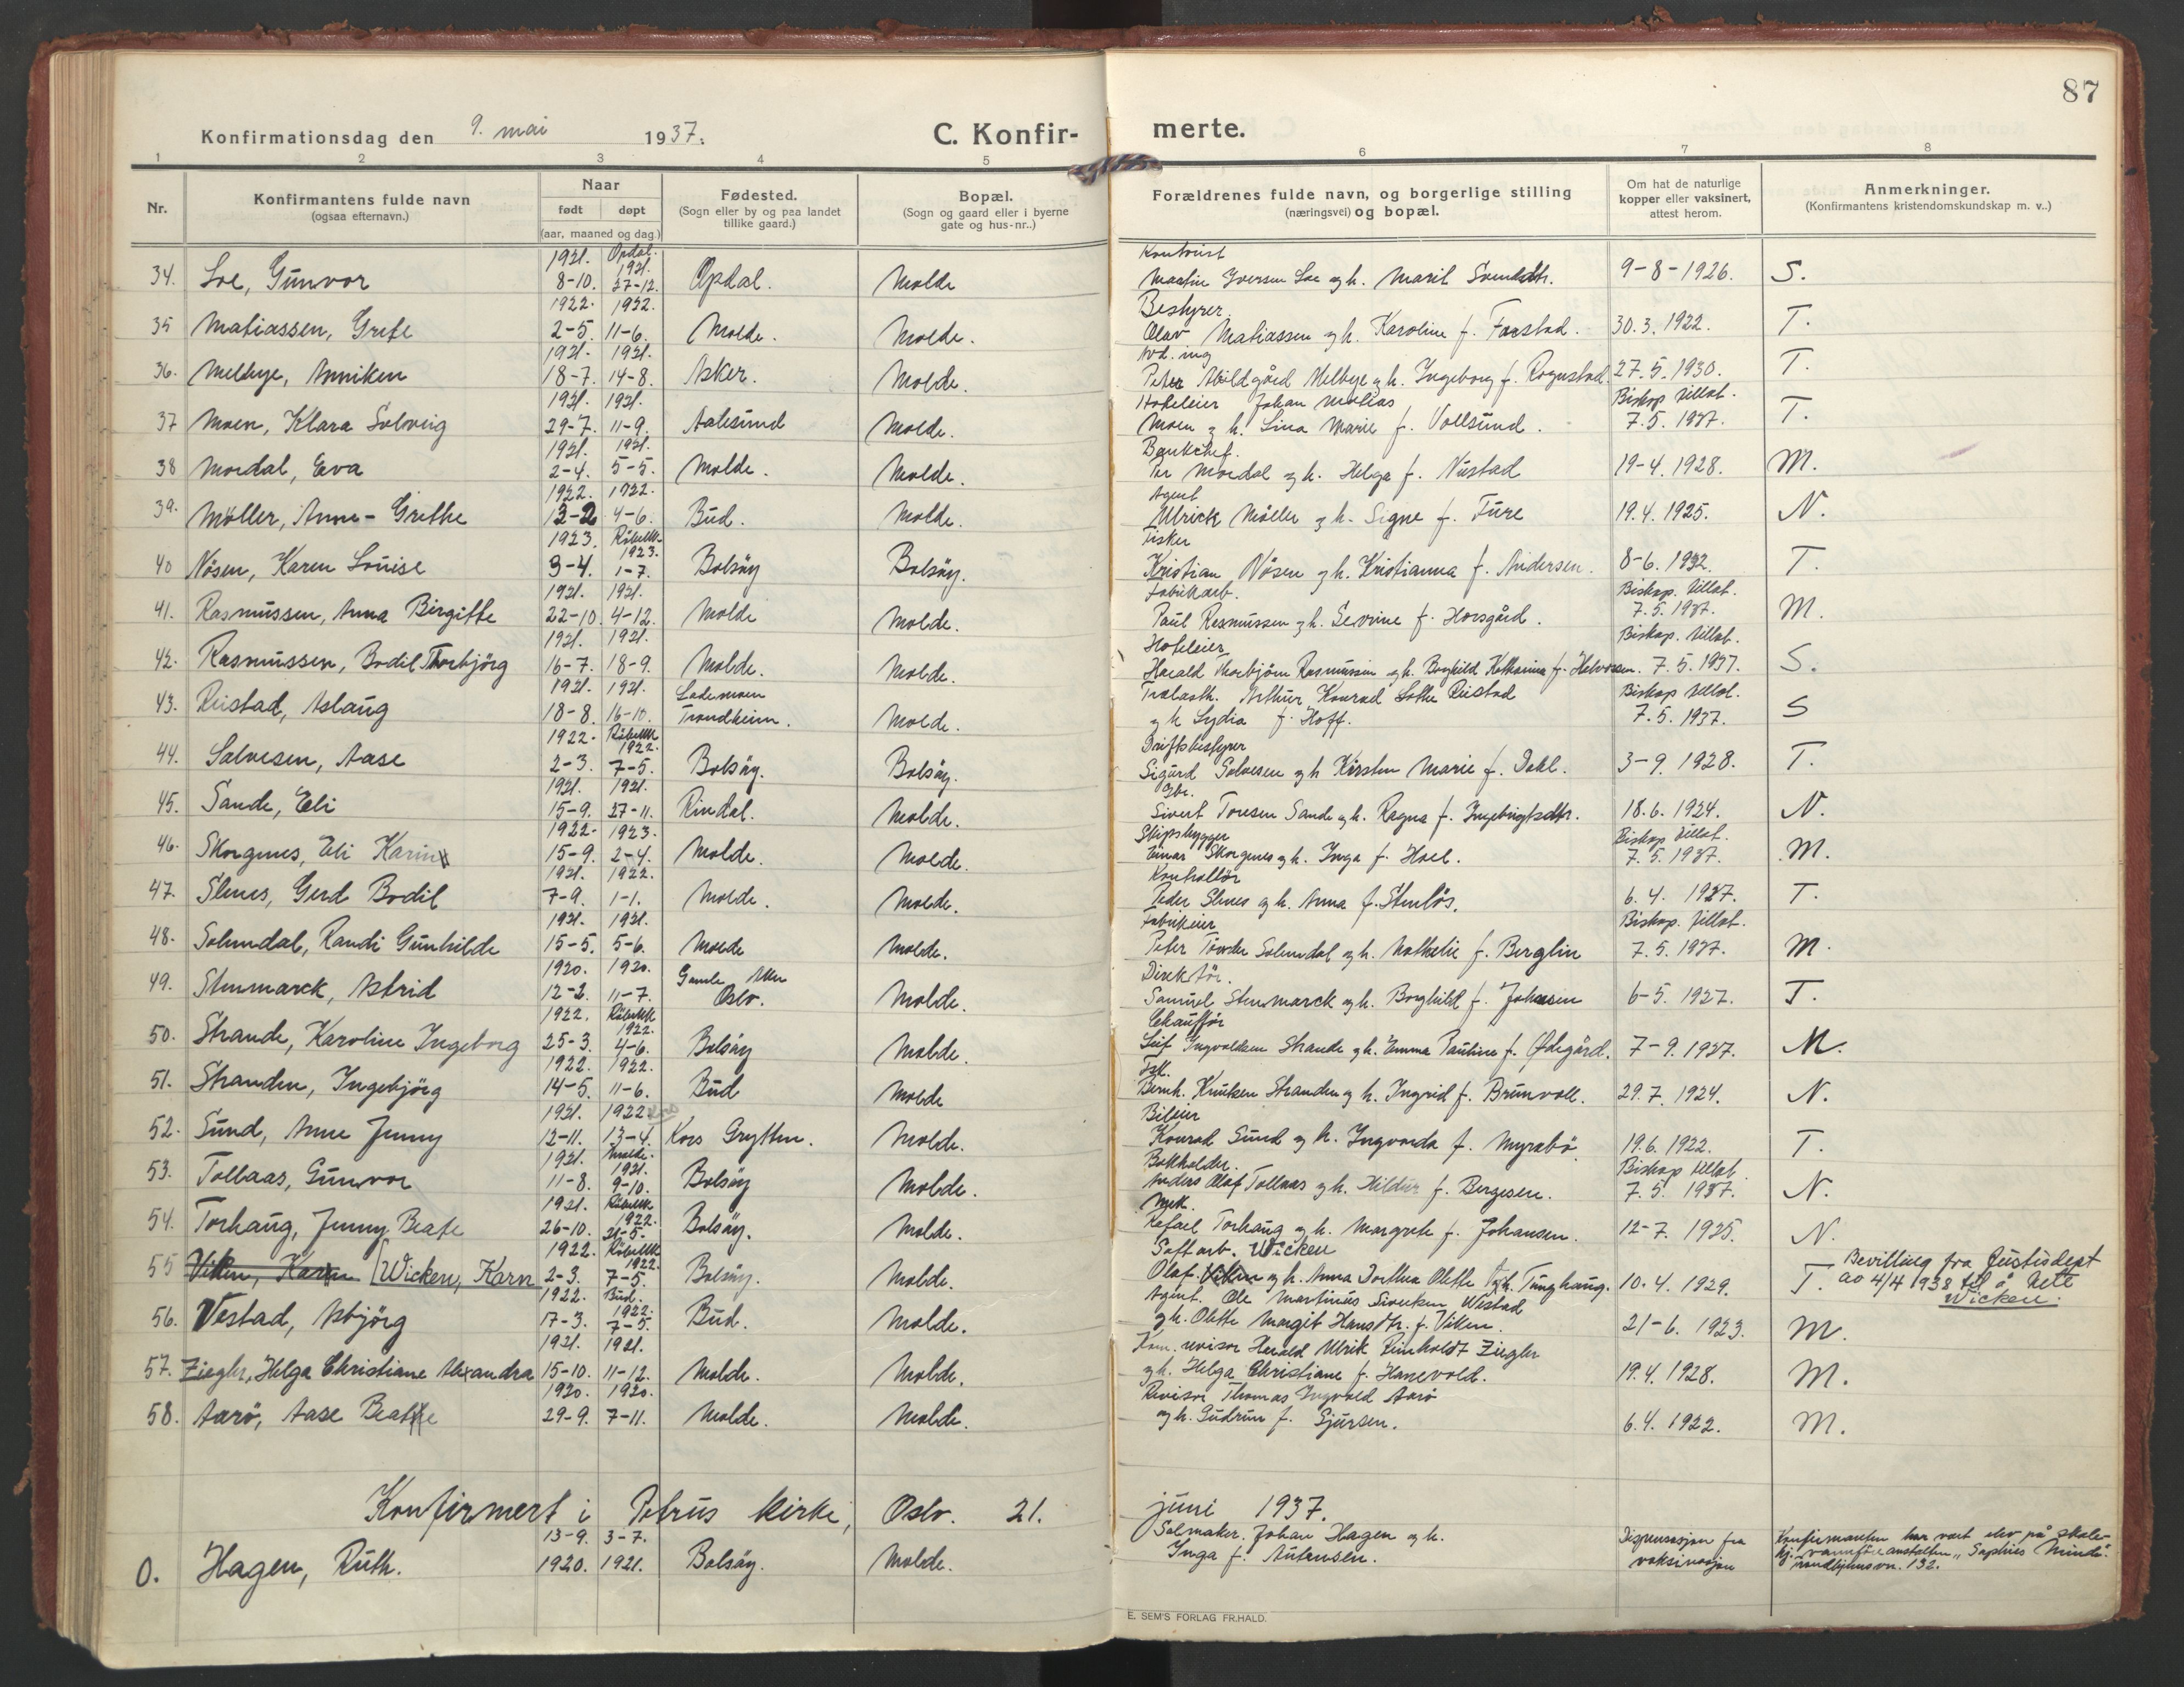 87
Konfirmationsdag den 9. mai 1937. C. Konfir- merte.
1 2 3 4 5 6 7 8
Nr. Konfirmantens fulde navn (ogsaa efternavn.) Naar født døpt (aar, maaned og dag.) Fødested. (Sogn eller by og paa landet tillike gaard.) Bopæl. (Sogn og gaard eller i byerne gate og hus-nr..) Forældrenes fulde navn, og borgerlige stilling (næringsvei) og bopæl. Om hat de naturlige kopper eller vaksinert, attest herom. Anmerkninger. (Konfirmantens kristendomskundskap m. v..)
1921. Opdal. 1921. Kontrist
34. Loe, Gunvor 8-10. 27-12. Opdal. Molde Martin Iversen Loe og h. Marit Svendsdtr. 9-8-1926. S.
1922. 1922. Bestyrer.
35 Matiassen, Grete 2-5. 11-6. Molde. Molde. Olav Matiassen og h. Karoline f. Farstad. 30.3.1922. T.
1921. 1921. Avd. ing
36. Melbye, Anniken 18-7. 14-8. Asker. Molde. Peter Abildgård Melbye og h. Ingeborg f. Rognstad. 27.5.1930. T.
1921. 1921. Hoteleier Johan Matias Biskop tillat.
37 Moen, Klara Solveig 29-7. 11-9. Aalesund Molde. Moen og h. Lina Marie f. Vollsund. 7.5.1937. T.
1921. 1921. Bankchef.
38 Mordal, Eva 2-4. 5-5. Molde. Molde. Per Mordal og h. Helga f. Nustad 19-4.1928. M.
1922. 1922. Agent
39. Møller, Anne-Grethe 13-2 4-6. Bud. Molde. Ulrick Møller og h. Signe f. Fure 19.4.1925. N.
1923. Røbekk 1923. Fisker
40 Nøsen, Karen Louise 3-4. 1-7. Bolsøy Bolsøy. Kristian Nøsen og h. Kristianna f. Andersen. 8-6.1932. T.
1921. 1921. Fabrikarb. Biskop. tillat.
41. Rasmussen, Anna Birgitte 22-10. 4-12. Molde Molde. Paul Rasmussen og h. Sevrine f. Horsgård. 7.5.1937. M.
1921. 1921. Hoteleier Biskop. tillat.
42. Rasmussen, Bodil Thorbjørg 16-7. 18-9. Molde. Molde. Harald Thorbjørn Rasmussen og h. Borghild Katharina f. Halvorsen. 7.5.1937. S.
1921. 1921. Lademoen Trelasth. Arthur Konrad Lothe Rustad Biskop tillat.
43. Rustad, Aslaug 18-8. 16-10. Trondheim. Molde. og h Lydia f. Hoff. 7.5.1937. S
1922. Røbekk 1922. Driftsbestyrer
44. Salvesen, Aase 2-3. 7-5. Bolsøy. Bolsøy. Sigurd Salvesen og h Kirsten Marie f. Dahl. 3-9.1928. T.
1921. 1921. Gbr.
45. Sande, Eli 15-9. 27-11. Rindal. Molde. Sivert Toresen Sande og h. Ragna f. Ingebrigtsdtr. 18.6.1924. N.
1922. 1923. Skipsbygger Biskop tillat.
46. Skorgenes, Eli Karin 15-9. 2-4. Molde. Molde. Einar Skorgenes og h. Inga f. Hoel. 7.5.1937. M.
1921. 1922. Kontrollør
47. Slenes, Gerd Bodil 7-9. 1-1. Molde. Molde. Peder Slenes og h. Anna f. Stenløs. 6.4.1927. T.
1921. 1921. Fabrikeier Biskop. tillat.
48. Solemdal, Randi Gunhilde 15-5. 5-6. Molde Molde. Peter Solemdal og h. Nathalie f. Berglin 7.5.1937. M.
1920. 1920. Gamle Aker Direktør.
49. Stenmarck, Astrid 12-2. 11-7. Oslo. Molde. Samuel Stenmarck og h. Borghild f. Johansen 6-5.1927. T.
1922. Røbekk 1922. Chauffør
50. Strande, Karoline Ingeborg 25-3. 4-6. Bolsøy Molde. Leif Ingvoldsen Strande og h. Emma Pauline f. Ødegård. 7-9.1937. M.
1922. 1922. Fisk.
51. Stranden, Ingebjørg 14-5. 11-6. Bud Molde Bernh. Knutsen Stranden og h. Ingrid f. Brunvoll. 29.7.1924. N.
1921. 1922. Bileier
52. Sund, Anne Jenny 12-11. 13-4. Kors Grytten. Molde. Konrad Sund og h. Ingvarda f. Myrabø 19.6.1922. T.
1921. Molde. 1921. Bokholder. Biskop tillat
53. Tollaas, Gunvor 11-8. 9-10. Bolsøy Molde. Anders Olaf Tollaas og h. Hildur f. Bergesen. 7.5.1937. N.
1921. Røbekk 1922. Mek.
54. Torhaug, Jenny Beate 26-10. 21-5. Bolsøy. Molde. Rafael Torhaug og h. Margrete f. Johansen. 12-7.1925. N.
1922. Røbekk 1922. Saftarb. Wicken Bevilling fra Justisdept
55 Viken, Karen [Wicken, Karn 2-3. 7-5. Bolsøy. Molde. Olaf Viken og h. Anna Dorthea Olette f. Tunghaug. 10.4.1929. T. av 4/4 1938 til å hete Wicken.
1922. Bud. 1922. Agent. Ole Martinus Sivertsen Westad
56. Vestad, Asbjørg 17-3. 7-5. Bud. Molde. og h. Olette Margit Hansdtr. f. Viken. 21-6.1923. M.
1921. 1921. Kom. revisor Harald Ulrik Reinholdt Ziegler
57. Ziegler, Helga Christiane Alexandra 15-10. 11-12. Molde. Molde. og h. Helga Christiane f. Hanevold. 19.4.1928. M.
1920. 1920. Revisor Thomas Ingvald Aarø
58. Aarø, Aase Beate 29-9. 7-11. Molde. Molde. og h. Gudrun f. Sjursen. 6.4.1922. M.
Konfirmert i Petrus kirke, Oslo. 21. juni 1937.
13-9. 3-7. Salmaker. Johan Hagen og h. Dispensasjon fra Konfirmanten har vært elev på skole-
0. Hagen, Ruth. 1920. 1921. Bolsøy. Molde. Inga f. Antonsen. vaksinasjon hj. vanføreanstalten "Sophies Minde".
Trondhjemsvn. 132.
E. SEM'S FORLAG FR.HALD.